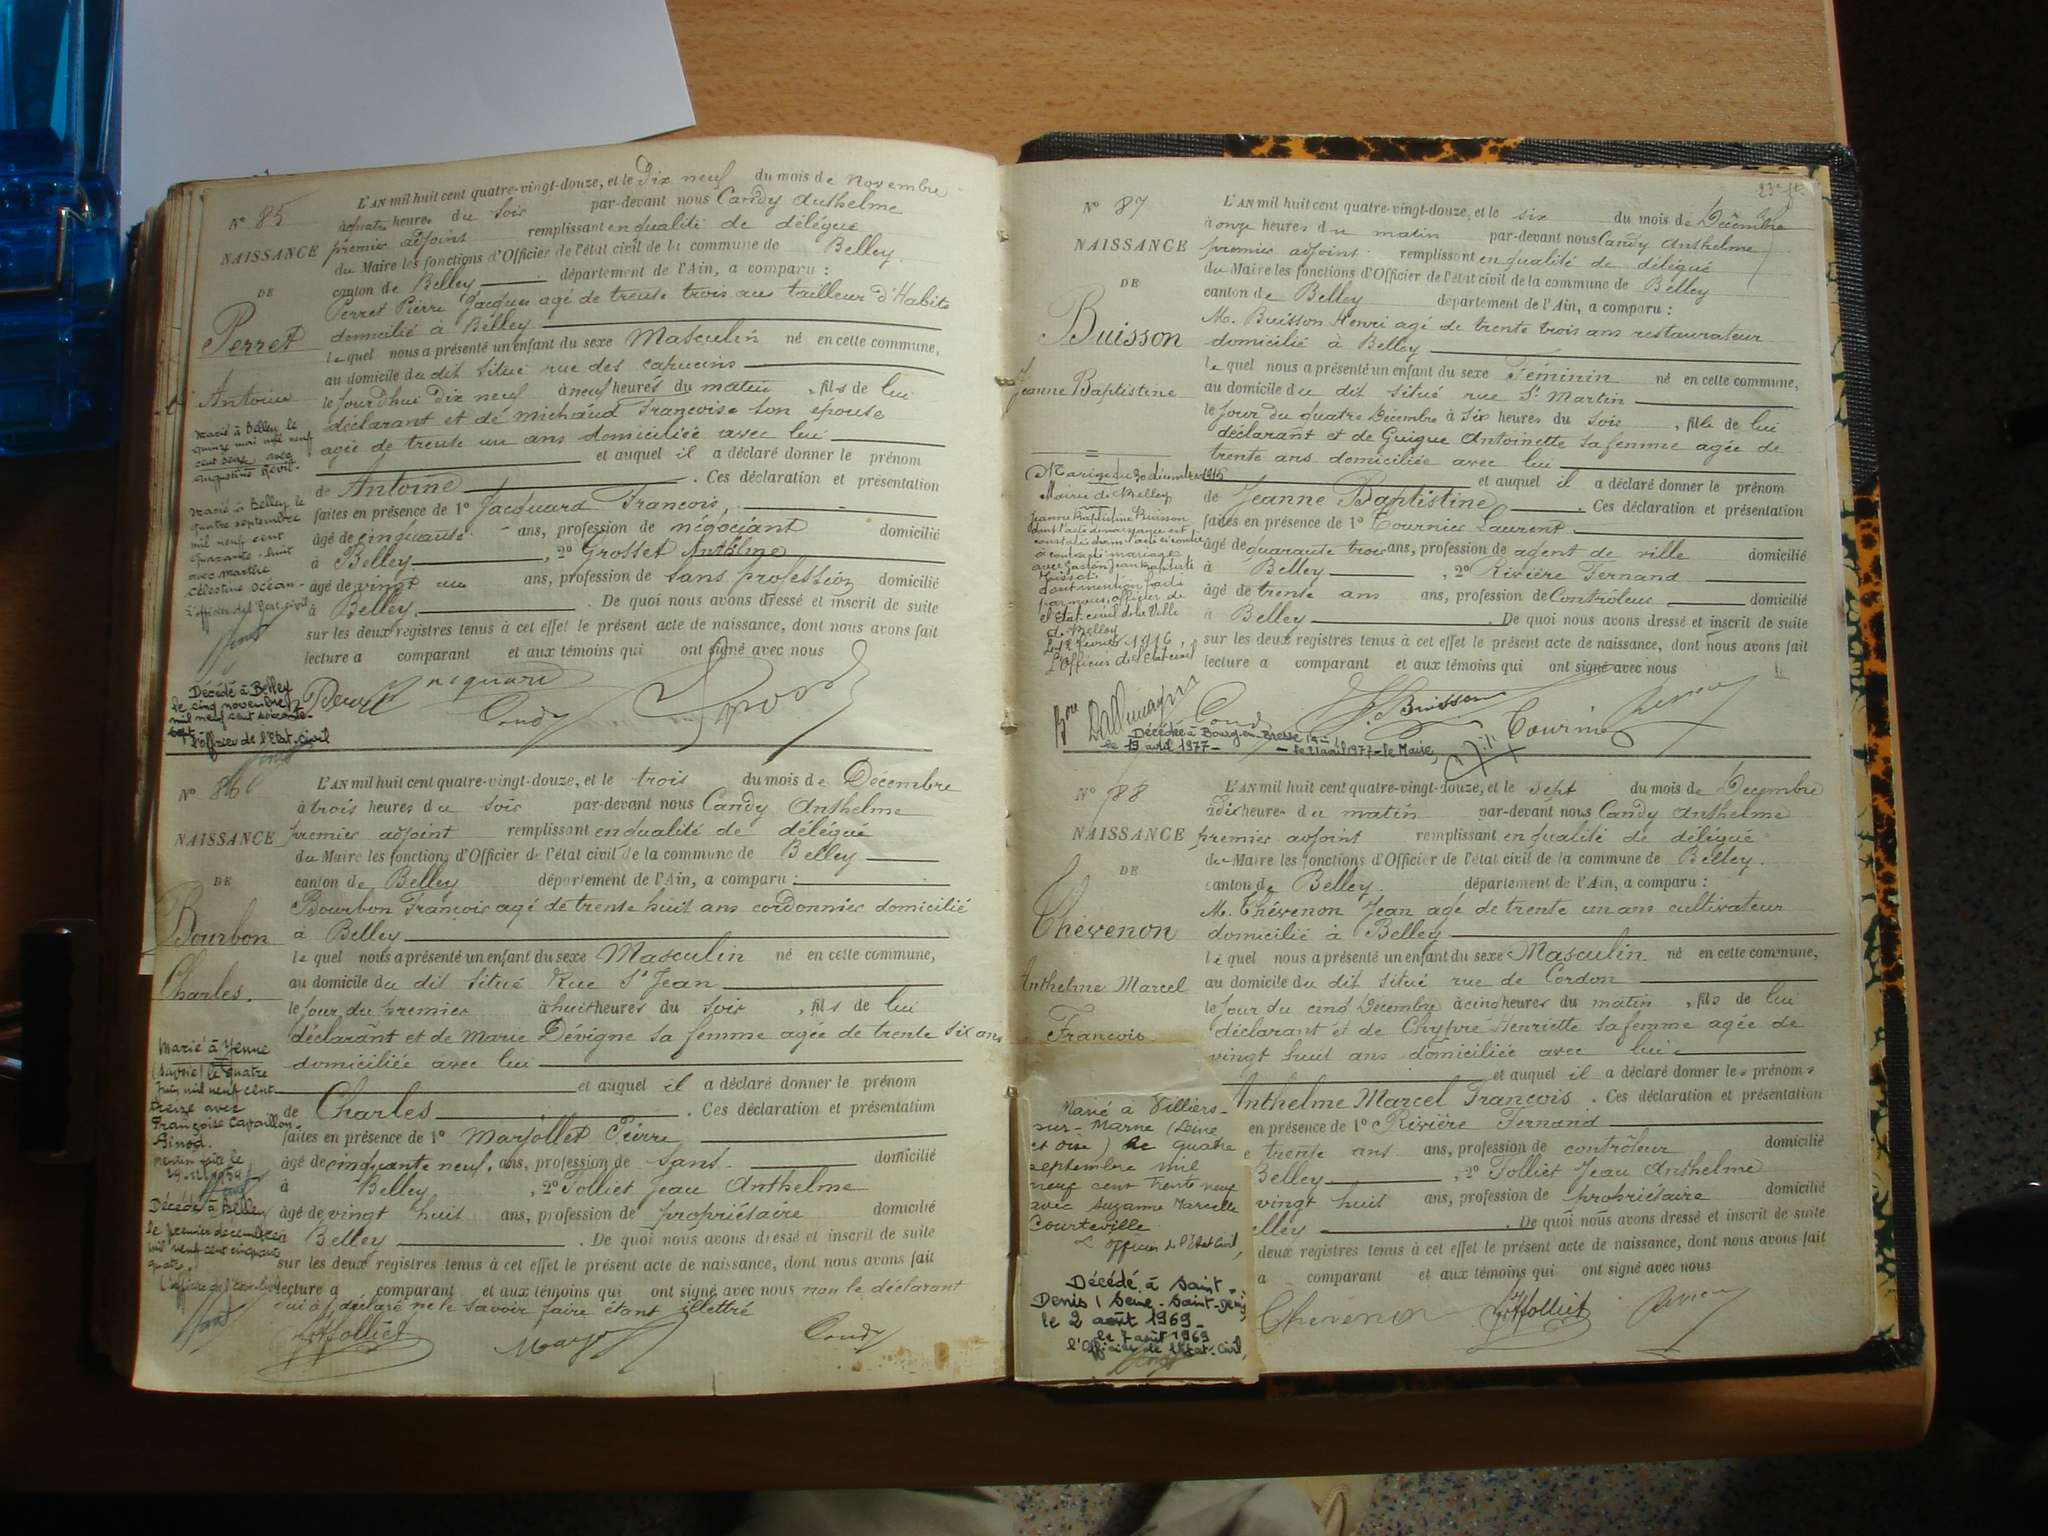 L'AN mil huit cent quatre-vingt-douze, et le Dix neuf du mois de Novembre
N° 85
à quatre heures du soir par-devant nous Candy Anthelme
premier adjoint remplissant en qualité de délégué
NAISSANCE
du Maire les fonctions d'Officier de l'état civil de la commune de Belley
DE
canton de Belley département de l'Ain, a comparu :
Perret Pierre Jacques agé de trente trois ans tailleur d'Habits
Perret
domicilié à Belley
le quel nous a présenté un enfant du sexe Masculin né en cette commune,
au domicile du dit situé rue des capucins
Antoine
le jourdhui Dix neuf à neuf heures du matin, fils de lui
déclarant et de Michaud Françoise son épouse
agée de trente un ans domiciliée avec lui
et auquel il a déclaré donner le prénom
de Antoine. Ces déclaration et présentation
faites en présence de 1° Jacquard François,
âgé de cinquante ans, profession de négociant domicilié
à Belley, 2° Grosset Anthelme
âgé de vingt un ans, profession de sans profession domicilié
à Belley. De quoi nous avons dressé et inscrit de suite
sur les deux registres tenus à cet effet le présent acte de naissance, dont nous avons fait
lecture a comparant et aux témoins qui ont signé avec nous
Marié à Belley le
quinze mai mil neuf
cent seize avec
Augustine Revil.
Marié à Belley le
quatre septembre
mil neuf cent
quarante-huit
avec Marthe
Célestine Océan.
L'officier de l'Etat-civil
Décédé à Belley
le cinq novembre
mil neuf cent soixante-
sept.
L'officier de l'Etat-civil
Perret Jacquard Candy
L'AN mil huit cent quatre-vingt-douze, et le trois du mois de Décembre
N° 86
à trois heures du soir par-devant nous Candy Anthelme
NAISSANCE
premier adjoint remplissant en qualité de délégué
du Maire les fonctions d'Officier de l'état civil de la commune de Belley
DE
canton de Belley département de l'Ain, a comparu :
Bourbon François agé de trente huit ans cordonnier domicilié
Bourbon
à Belley
le quel nous a présenté un enfant du sexe Masculin né en cette commune,
Charles.
au domicile du dit situé Rue St Jean
le jour du premier à huit heures du soir, fils de lui
déclarant et de Marie Dévigne sa femme agée de trente six ans
domiciliée avec lui
et auquel il a déclaré donner le prénom
de Charles. Ces déclaration et présentation
faites en présence de 1° Marjollet Pierre
âgé de cinquante neuf ans, profession de sans. domicilié
à Belley, 2° Tolliet Jean Anthelme
âgé de vingt huit ans, profession de propriétaire domicilié
à Belley. De quoi nous avons dressé et inscrit de suite
sur les deux registres tenus à cet effet le présent acte de naissance, dont nous avons fait
lecture a comparant et aux témoins qui ont signé avec nous non le déclarant
qui a déclaré ne le savoir faire étant illettré
Marié à Yenne
(Savoie) le quatre
juin mil neuf cent
treize avec
Françoise
Ginod.
Mention faite le
Décédé à Belley
le premier décembre
mil neuf cent cinquante
quatre.
L'officier de l'état civil
Tolliet Candy
23e ft
L'AN mil huit cent quatre-vingt-douze, et le six du mois de Décembre
N° 87
à onze heures du matin par-devant nous Candy Anthelme
NAISSANCE
premier adjoint remplissant en qualité de délégué
du Maire les fonctions d'Officier de l'état civil de la commune de Belley
DE
canton de Belley département de l'Ain, a comparu :
M. Buisson Henri agé de trente trois ans restaurateur
Buisson
domicilié à Belley
le quel nous a présenté un enfant du sexe Féminin né en cette commune,
Jeanne Baptistine
au domicile du dit situé rue St Martin
le jour du quatre Décembre à six heures du soir, fille de lui
déclarant et de Guigue Antoinette sa femme agée de
trente ans domiciliée avec lui
et auquel il a déclaré donner le prénom
de Jeanne Baptistine. Ces déclaration et présentation
faites en présence de 1° Tournier Laurent
âgé de quarante trois ans, profession de agent de ville domicilié
à Belley, 2° Rivière Fernand
âgé de trente ans ans, profession de Contrôleur domicilié
à Belley. De quoi nous avons dressé et inscrit de suite
sur les deux registres tenus à cet effet le présent acte de naissance, dont nous avons fait
lecture a comparant et aux témoins qui ont signé avec nous
Mariage du 30 décembre 1915
Mairie de Belley
Jeanne Baptistine Buisson
dont l'acte de naissance est
constaté dans l'acte ci contre
a contracté mariage
avec Gaston Jean Baptiste
dont mention faite
par nous, officier de
l'Etat-civil de la Ville
de Belley
février 1916
L'Officier de l'Etat civil
Candy Buisson Tournier
Décédée à Bourg-en-Bresse
le 19 avril 1977 - le 21 avril 1977 - le Maire,
L'AN mil huit cent quatre-vingt-douze, et le sept du mois de Décembre
N° 88
à dix heures du matin par-devant nous Candy Anthelme
NAISSANCE
premier adjoint remplissant en qualité de délégué
du Maire les fonctions d'Officier de l'état civil de la commune de Belley.
DE
canton de Belley. département de l'Ain, a comparu :
M. Thévenon Jean agé de trente un ans cultivateur
Thévenon
domicilié à Belley
le quel nous a présenté un enfant du sexe Masculin né en cette commune,
Anthelme Marcel
au domicile du dit situé rue de Cordon
le jour du cinq Décembre à cinq heures du matin, fils de lui
François
déclarant et de Chypre Henriette sa femme agée de
vingt huit ans domiciliée avec lui
et auquel il a déclaré donner les prénoms
Anthelme Marcel François. Ces déclaration et présentation
en présence de 1° Rivière Fernand
e trente ans ans, profession de contrôleur domicilié
Belley, 2° Tolliet Jean Anthelme
vingt huit ans, profession de propriétaire domicilié
elley. De quoi nous avons dressé et inscrit de suite
deux registres tenus à cet effet le présent acte de naissance, dont nous avons fait
a comparant et aux témoins qui ont signé avec nous
Marié à Villiers-
sur-Marne (Seine
et Oise) le quatre
septembre mil
neuf cent trente neuf
avec Suzanne Marcelle
Courteville
L'officier de l'Etat Civil,
Décédé à Saint-
Denis (Seine-Saint-Denis)
le 2 août 1969-
le 7 août 1969
l'Officier de l'Etat-Civil,
Thévenon Tolliet Rivière